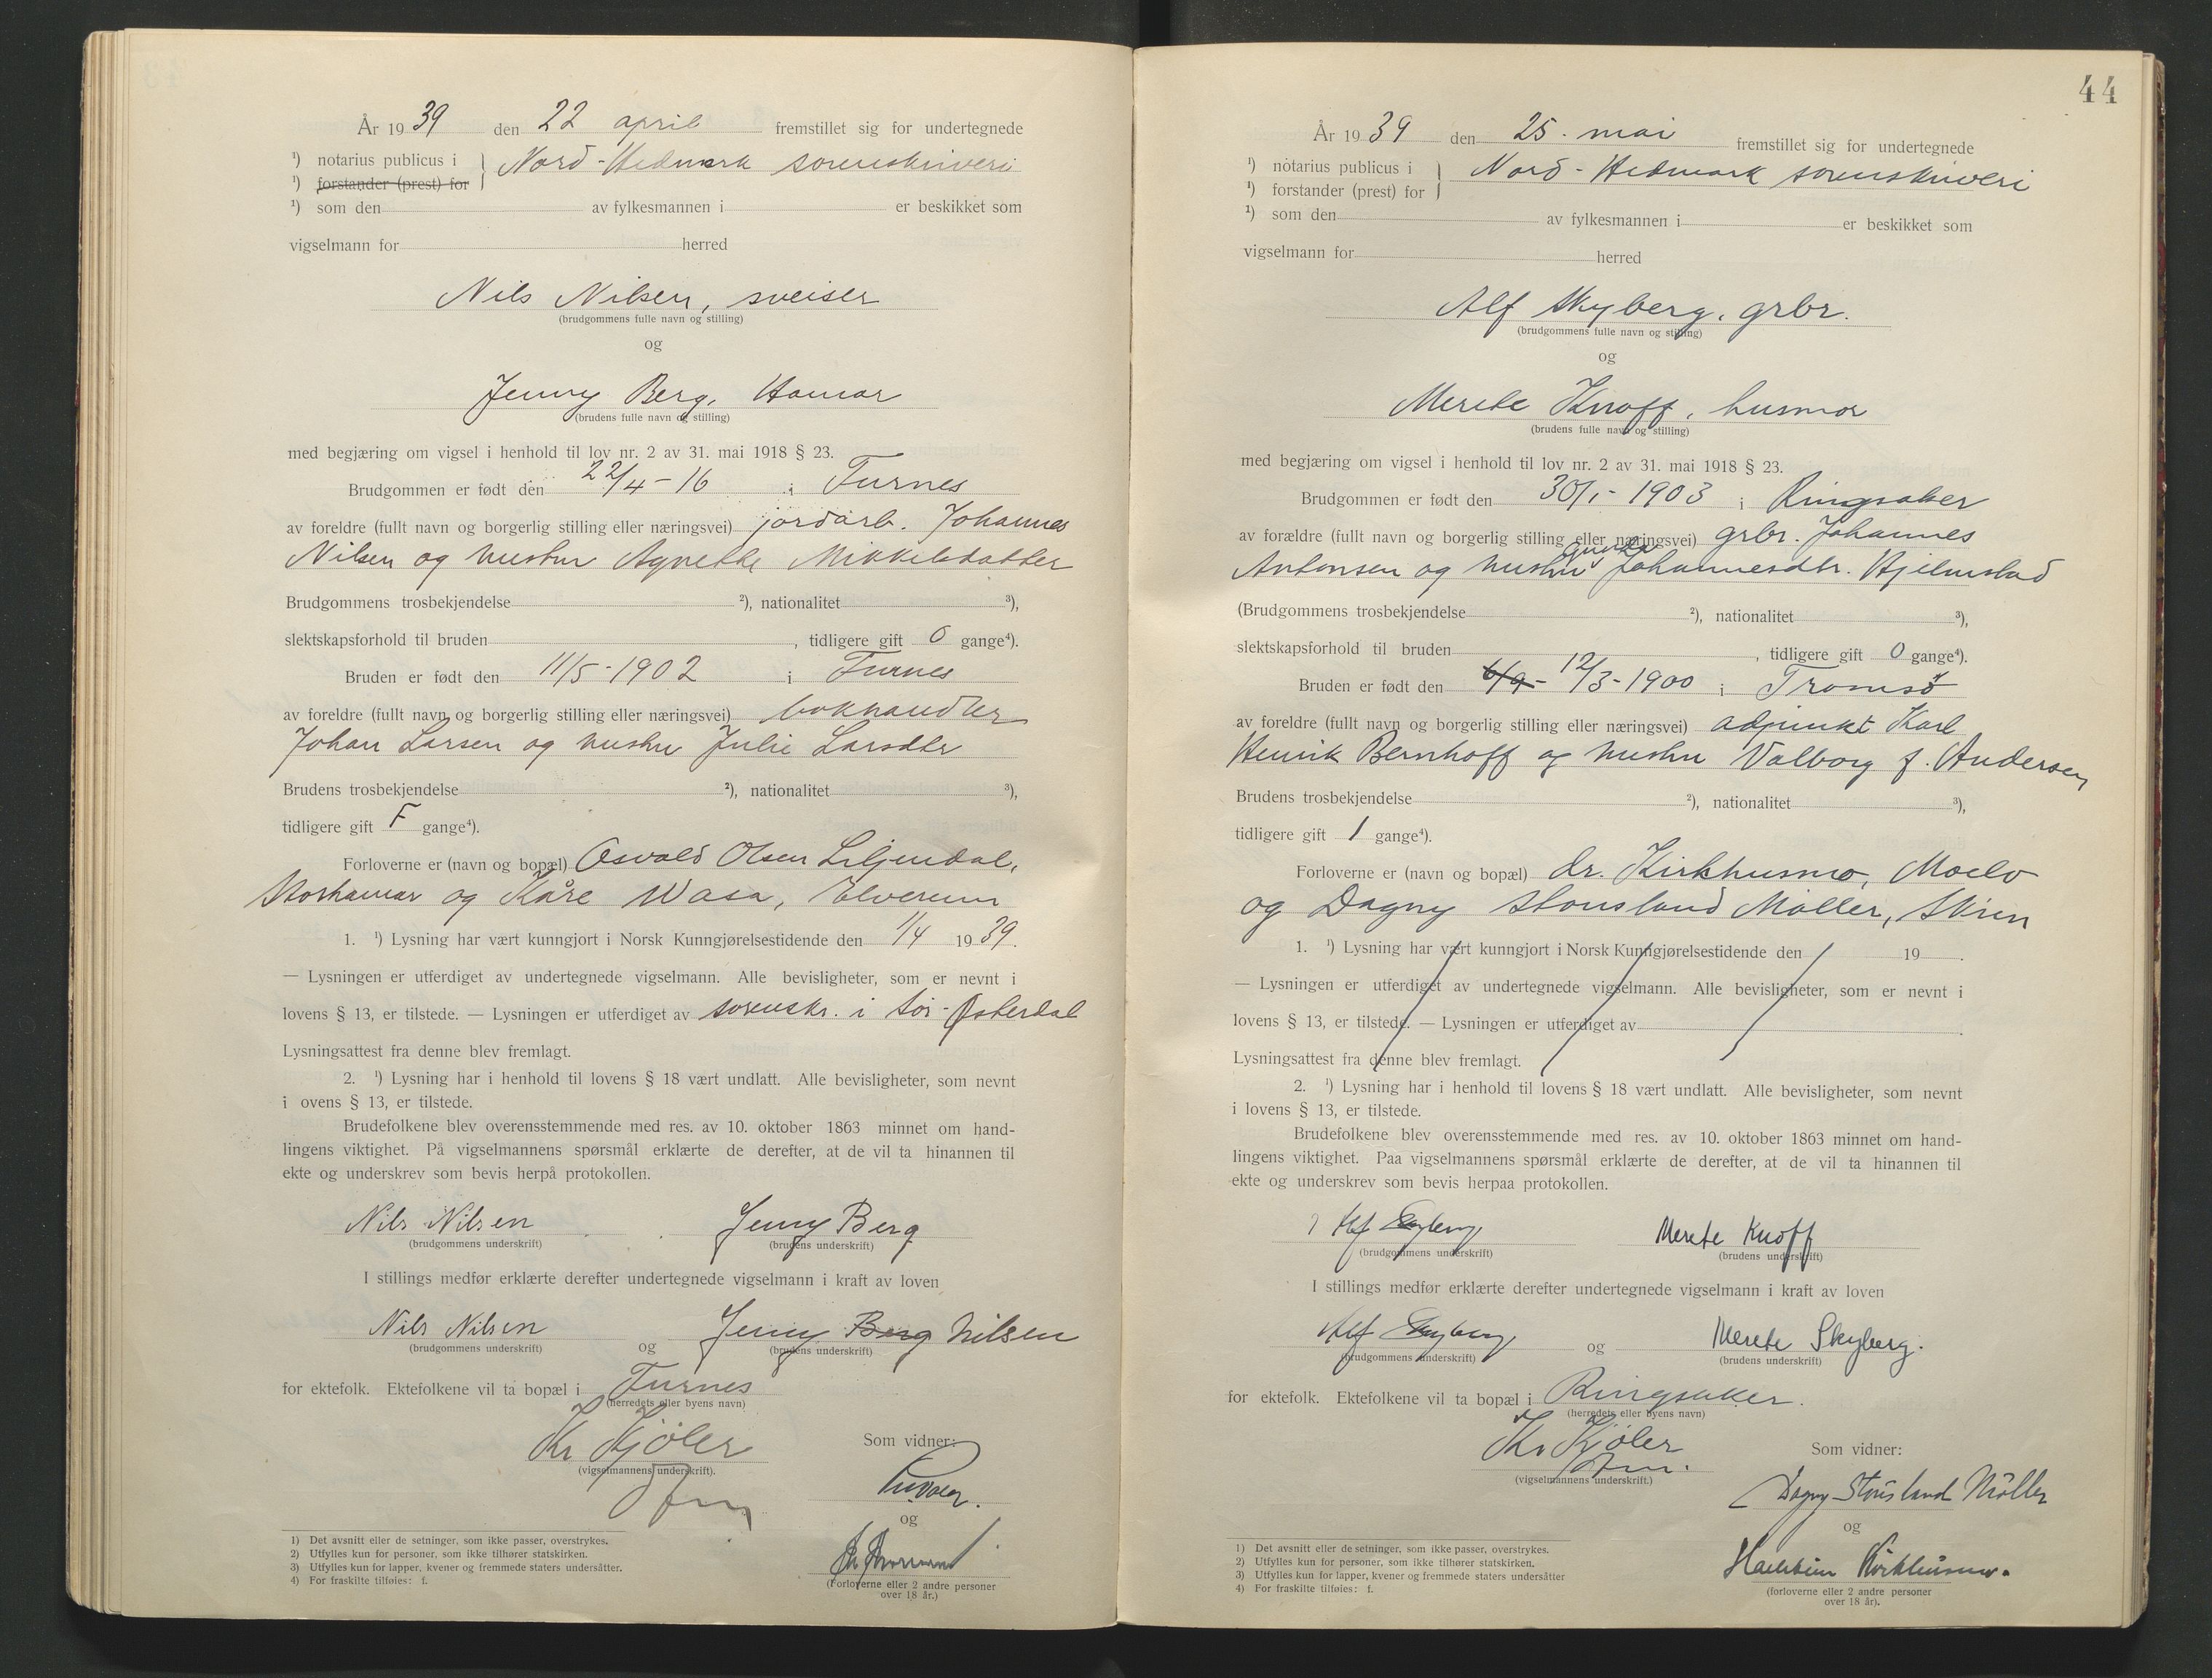 År 1939 den 22 april fremstillet sig for undertegnede
¹) notarius publicus i } Nord-Hedmark sorenskriveri
¹) forstander (prest) for
¹) som den av fylkesmannen i er beskikket som
vigselmann for herred
Nils Nilsen, sveiser
(brudgommens fulle navn og stilling)
og
Jenny Berg, Hamar
(brudens fulle navn og stilling)
med begjæring om vigsel i henhold til lov nr. 2 av 31. mai 1918 § 23.
Brudgommen er født den 22/4-16 i Furnes
av foreldre (fullt navn og borgerlig stilling eller næringsvei) jordarb. Johannes
Nilsen og hustru Agnethe Mikkelsdatter
Brudgommens trosbekjendelse ²), nationalitet ³),
slektskapsforhold til bruden , tidligere gift 0 gange⁴).
Bruden er født den 11/5-1902 i Furnes
av foreldre (fullt navn og borgerlig stilling eller næringsvei) bokhandler
Johan Larsen og hustru Julie Larsdtr
Brudens trosbekjendelse ²), nationalitet ³),
tidligere gift F gange⁴).
Forloverne er (navn og bopæl) Osvald Olsen Liljendal,
Storhamar og Kåre Wasa, Elverum
1. ¹) Lysning har vært kunngjort i Norsk Kunngjørelsestidende den 1/4 1939.
— Lysningen er utferdiget av undertegnede vigselmann. Alle bevisligheter, som er nevnt i
lovens § 13, er tilstede. — Lysningen er utferdiget av sorenskr. i Sør-Østerdal
Lysningsattest fra denne blev fremlagt.
2. ¹) Lysning har i henhold til lovens § 18 vært undlatt. Alle bevisligheter, som nevnt
i ovens § 13, er tilstede.
Brudefolkene blev overensstemmende med res. av 10. oktober 1863 minnet om hand-
lingens viktighet. På vigselmannens spørsmål erklærte de derefter, at de vil ta hinannen til
ekte og underskrev som bevis herpå protokollen.
Nils Nilsen Jenny Berg
(brudgommens underskrift) (brudens underskrift)
I stillings medfør erklærte derefter undertegnede vigselmann i kraft av loven
Nils Nilsen og Jenny Berg Nilsen
(brudgommens underskrift) (brudens underskrift)
for ektefolk. Ektefolkene vil ta bopæl i Furnes
(herredets eller byens navn)
Kr Kjøler
(vigselmannens underskrift).
Som vidner:
og
(Forloverne eller 2 andre personer
over 18 år.)
1) Det avsnitt eller de setninger, som ikke passer, overstrykes.
2) Utfylles kun for personer, som ikke tilhører statskirken.
3) Utfylles kun for lapper, kvener og fremmede staters undersåtter.
4) For fraskilte tilføies: f.
44
År 1939 den 25. mai fremstillet sig for undertegnede
¹) notarius publicus i } Nord-Hedmark sorenskriveri
¹) forstander (prest) for
¹) som den av fylkesmannen i er beskikket som
vigselmann for herred
Alf Skyberg, grbr.
(brudgommens fulle navn og stilling)
og
Merete Knoff, husmor
(brudens fulle navn og stilling)
med begjæring om vigsel i henhold til lov nr. 2 av 31. mai 1918 § 23.
Brudgommen er født den 30/1-1903 i Ringsaker
av forældre (fullt navn og borgerlig stilling eller næringsvei) grbr. Johannes
Antonsen og hustru Johannesdtr. Hjelmstad
(Brudgommens trosbekjendelse ²), nationalitet ³),
slektskapsforhold til bruden , tidligere gift 0 gange⁴).
Bruden er født den 6/9- 12/3-1900 i Tromsø
av foreldre (fullt navn og borgerlig stilling eller næringsvei) adjunkt Karl
Henrik Bernhoff og hustru Valborg f. Andersen
Brudens trosbekjendelse ²), nationalitet ³),
tidligere gift 1 gange⁴).
Forloverne er (navn og bopæl) dr. Kirkhusmo, Moelv
og Dagny Stousland Møller, Skien
1. ¹) Lysning har vært kunngjort i Norsk Kunngjørelsestidende den 19 .
— Lysningen er utferdiget av undertegnede vigselmann. Alle bevisligheter, som er nevnt i
lovens § 13, er tilstede. — Lysningen er utferdiget av .
Lysningsattest fra denne blev fremlagt.
2. ¹) Lysning har i henhold til lovens § 18 vært undlatt. Alle bevisligheter, som nevnt
i lovens § 13, er tilstede.
Brudefolkene blev overensstemmende med res. av 10. oktober 1863 minnet om hand-
lingens viktighet. Paa vigselmannens spørsmål erklærte de derefter, at de vil ta hinannen til
ekte og underskrev som bevis herpaa protokollen.
Alf Skyberg Merete Knoff
(brudgommens underskrift) (brudens underskrift)
I stillings medfør erklærte derefter undertegnede vigselmann i kraft av loven
Alf Skyberg og Merete Skyberg.
(brudgommens underskrift) (brudens underskrift)
for ektefolk. Ektefolkene vil ta bopæl i Ringsaker.
(herredets eller byens navn)
Kr Kjøler
(vigselmannens underskrift.)
Som vidner:
Dagny Stousland Møller
og
Kirkhusmo.
(forloverne eller 2 andre personer
over 18 år).
1) Det avsnitt eller de setninger, som ikke passer, overstrykes.
2) Utfylles kun for personer, som ikke tilhører statskirken.
3) Utfylles kun for lapper, kvener og fremmede staters undersåtter
4) For fraskilte tilføies: f.